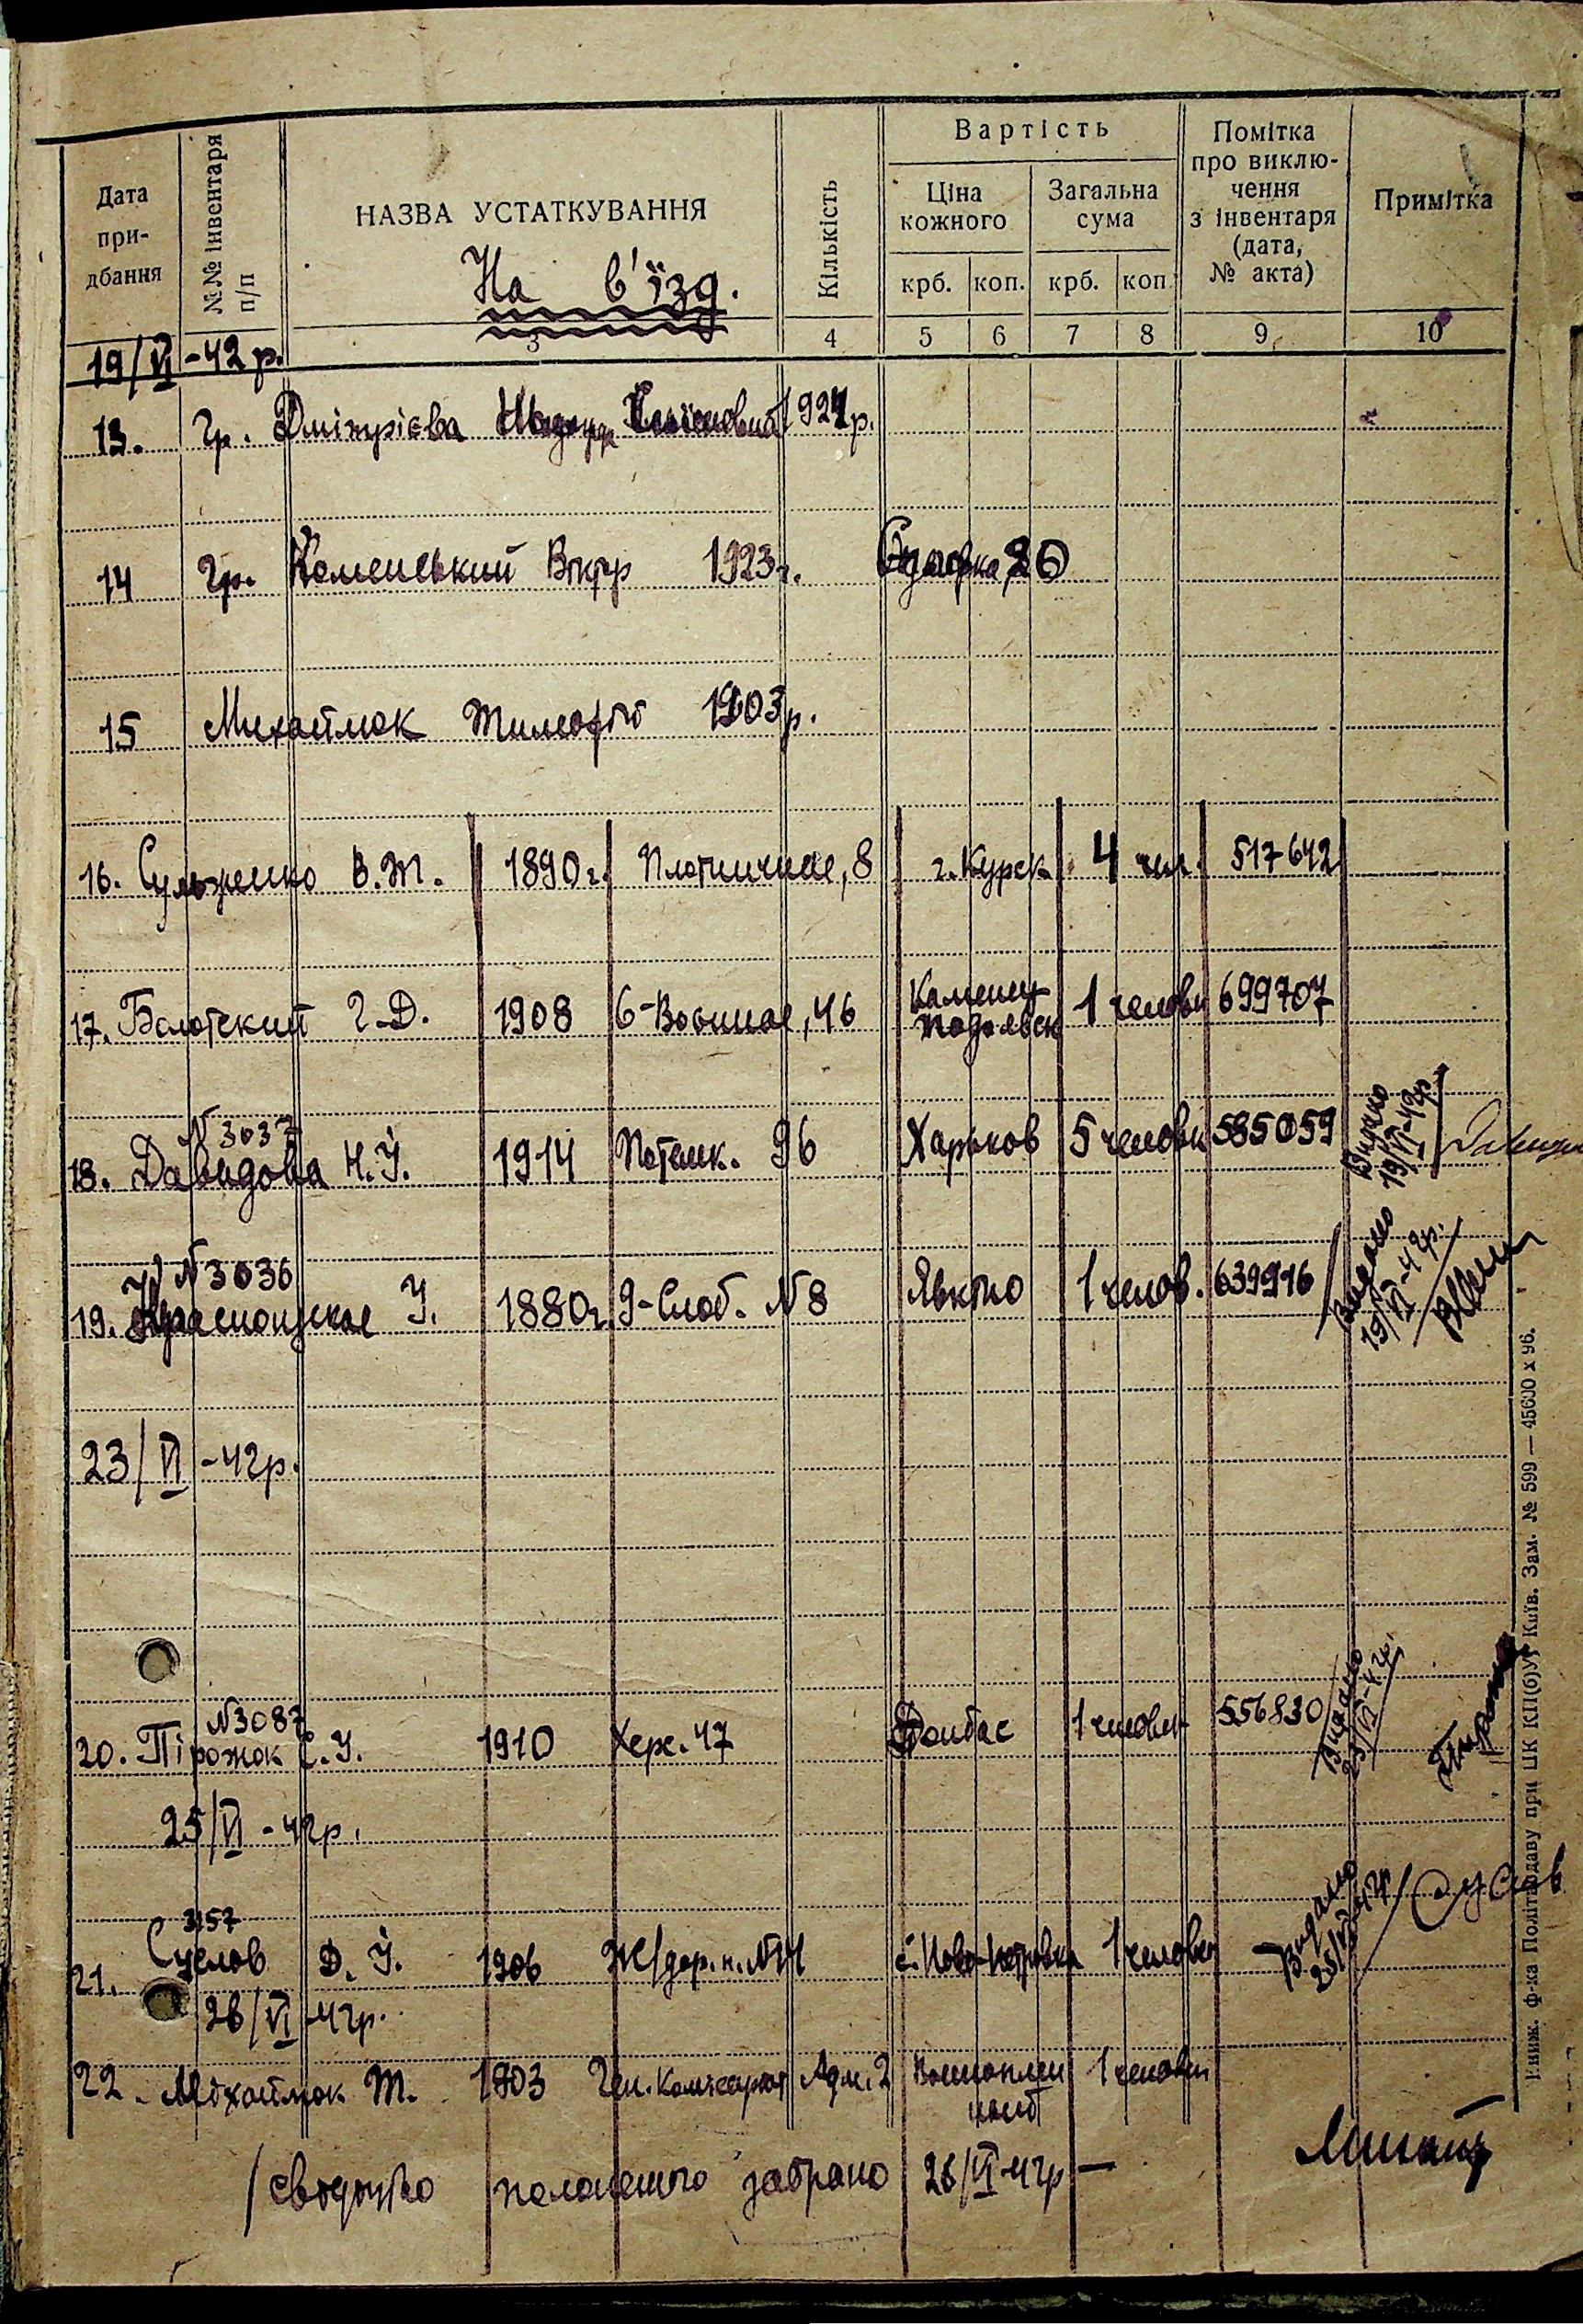 Дата
при-
дбання
№№ інвентаря
п/п
НАЗВА УСТАТКУВАННЯ
На в'їзд.
Кількість
Вартість
Ціна
кожного
Загальна
сума
крб. коп. крб. коп
Помітка
про виклю-
чення
з інвентаря
(дата,
№ акта)
Примітка
3 4 5 6 7 8 9 10
19/VI -42 р.
13. гр. Дмітрієва 1924р.
14 гр. Каменський Віктр 1923г. 26
15 Михайлюк Тимофій 1903р.
16. Сульженко В.Т. 1890г. Плотничная, 8 г. Курск 4 чел. 517642
17. Болотский Г.Д. 1908 6-Военная, 46 Каменец
Подольск 1 человек 699707
N 3037
18. Давидова Н.У. 1914 Потемк. 96 Харьков 5 человек 585059 Видано
19/VI-42р
N 3036
19. У. 1880г. 9-Слоб. N 8 Явкто 1 челов. 639916 Видано
19/VI-42р.
23/VI -42р.
N 3087
20. Пірожок Є.У. 1910 Херс. 47 Донбас 1 человек 556830 Видано
23/VI-42р.
25/VI -42р.
3157
21. Суслов Д. У. 1906 Ж/дор. п. N14 с. Ново-Петровка 1 человек - Видано
25/VI-42р Суслов
26/VI -42р.
22. Міхайлюк Т. 1903 Ген. Комісаріат Адм. 2 Военноплен
ный 1 человек
/свідоцтво полоненого забрано 26/VI-42р —
Книж. ф-ка Політвидаву при ЦК КП(б)У, Київ. Зам. № 599 — 45600 х 96.